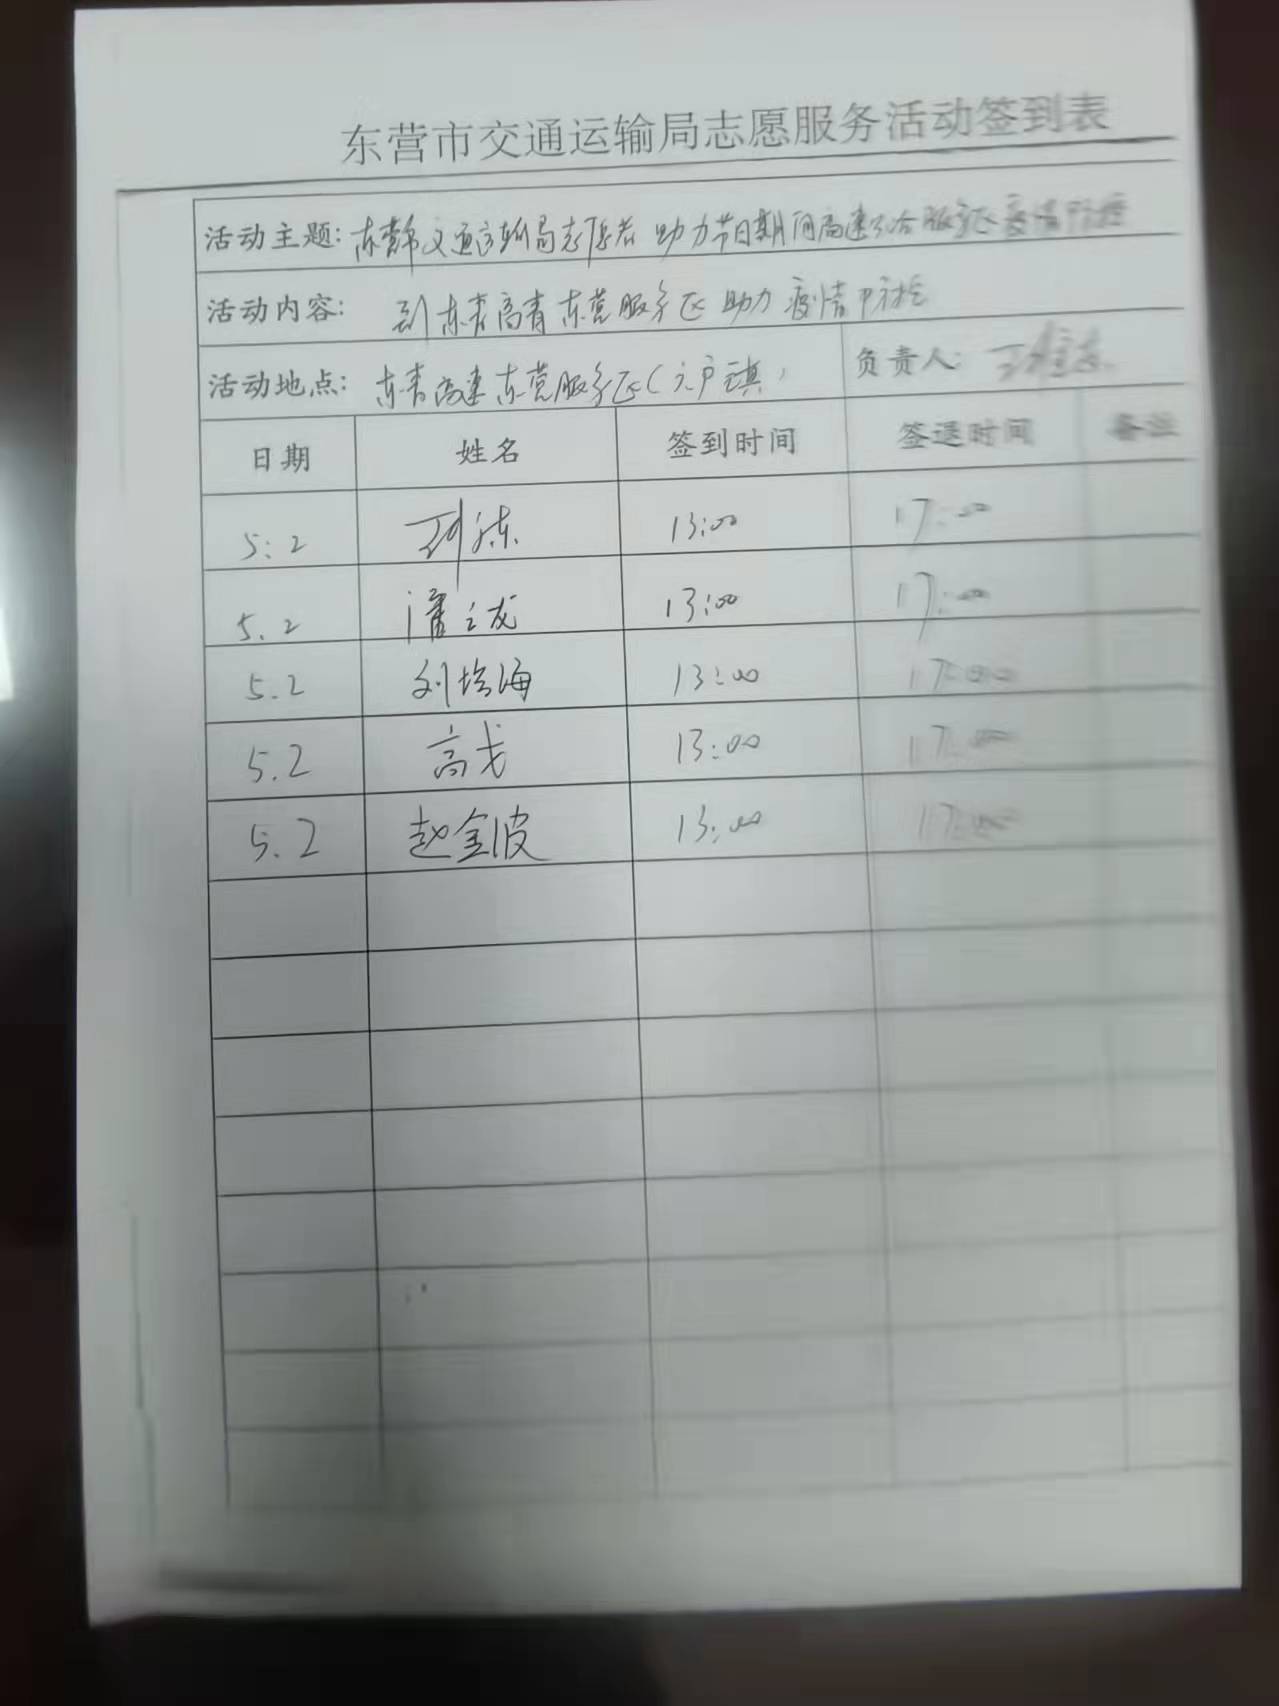 东营市交通运输局志愿服务活动签到表
活动主题: 东营市交通运输局志愿者 助力节日期间高速公路服务区疫情防控
活动内容: 到东青高青东营服务区助力疫情防控
活动地点: 东青高速东营服务区( 负责人:
日期 姓名 签到时间 签退时间 备注
5:2 13:00 17:00
5.2 潘之龙 13:00 17:00
5.2 刘培海 13:00 17:00
5.2 高戈 13:00 17:00
5.2 赵金波 13:00 17:00